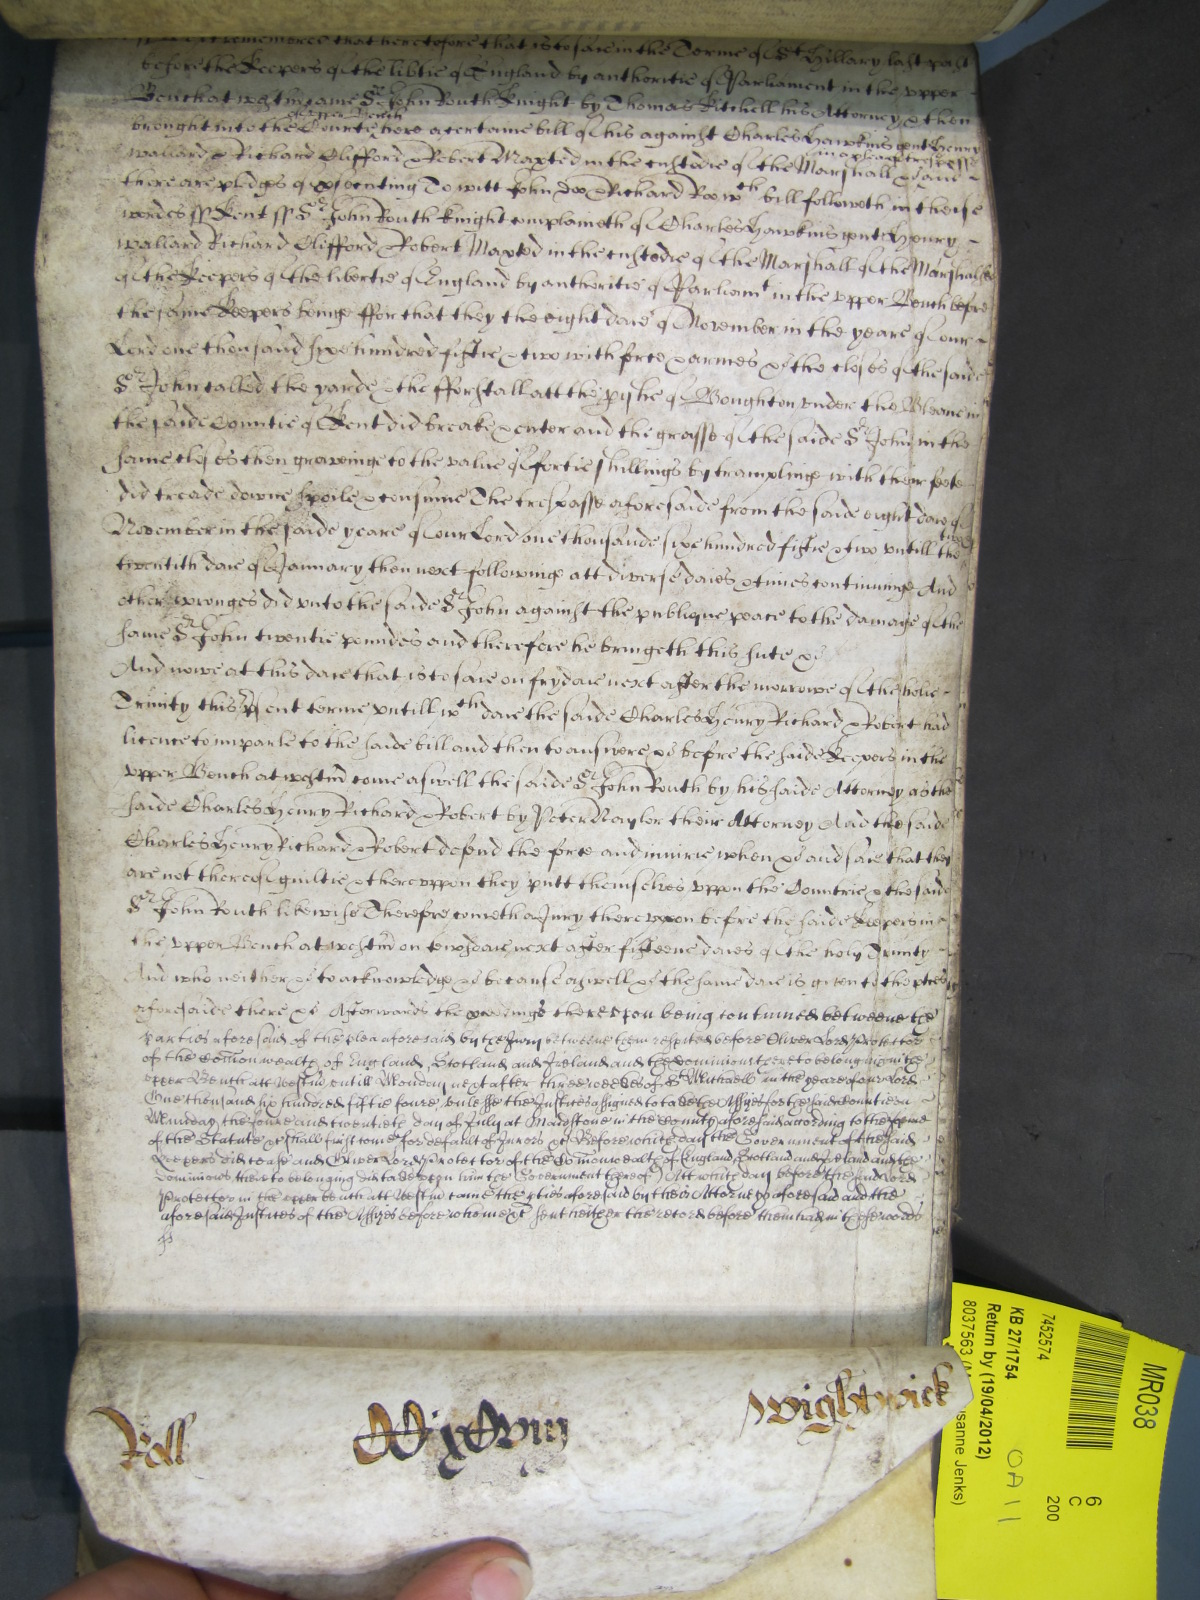 remembred that heretofore that is to saie in the Terme of St Hillary last past
before the Keepers of the libtie of England by authoritie of Parliament in the upper
Bench at westm came Sr John Routh Knight by Thomas Kitchell his Attorney & then
of upper Bench
brought into the Courte here a certaine bill of his against Charles Hawkins gent Henry
in a plea of trespass
Wallard & Richard Clifford & Robert Maxted in the custodie of the Marshall &c and
there are pledgs of psecuting To witt John doo & Richard Roo wch bill followeth in theise
wordes ss Kent ss Sr John Routh Knight complaineth of Charles Hawkins gent Henry
Wallard Richard Clifford & Robert Maxted in the custodie of the Marshall of the Marshalsea
of the Keepers of the libertie of England by authoritie of Parliamt in the upper Bench before
the same Keepers beinge ffor that they the eight daie of November in the yeare of our
Lord one thousand sixe hundred fiftie & two with force & armes &c the closes of the saide
Sr John called the yarde & the fforstall att the pishe of Boughton under the Bleane in
the saide Countie of Kent did breake & enter and the grasse of the saide Sr John in the
same closes then growinge to the value of fortie shillings by trampling with their feete
did treade downe spoile & consume The trespasse aforesaide from the saide eight daie of
November in the saide yeare of our Lord one thousande sixe hundred fiftie & two untill the
twentith daie of January then next followinge att diverse daies & times continuinge And
other wronges did unto the saide Sr John against the publique peace to the damage of the
same Sr John twentie poundes and therefore he bringeth this sute &c
And nowe at this daie that is to saie on frydaie next after the morrowe of the holie
Trinity this psent terme untill wch daie the saide Charles Henry Richard & Robert had
licence to imparle to the saide bill and then to answere &c before the saide Keepers in the
upper Bench at westm come aswell the saide Sr John Routh by his saide Attorney as the
saide Charles Henry Richard & Robert by Peter Naylor their Attorney And the saide
Charles Henry Richard & Robert defend the force and iniurie when &c and saie that they
are not thereof guiltie & thereuppon they putt themselves uppon the Countrie & the saide
Sr John Routh likewise Therefore cometh a Jury thereuppon before the saide Keepers in
the upper Bench at westm on tewsdaie next after fifteene daies of the holy Trinity
And who neither &c to acknowledge &c because aswell &c the same daie is given to the pties
aforesaide there &c Afterwards the pceedings thereupon being continued betweene the
parties aforesaid of the plea aforesaid by the Jury betweene them respited before Oliver Lord Protector
of the Comonwealth of England Scotland and Ireland and the dominions thereto belonging in the
upper Bench att Westm untill Monday next after three weekes of St Michaell in the yeare of our Lord
One thousand six hundred fiftie foure, unlesse the Justices assigned to take the Assizes for the said Countie on
Munday the foure and twentieth day of July at Maidstone in the County aforesaid according to the forme
of the Statute &c shall first come for default of Jurors &c Before which day the Government of the said
Keepers did cease and Oliver Lord Protector of the Comonwealth of England Scotland and Ireland and the
dominions thereto belonging did take upon him the Government thereof Att which day before the said Lord
Protector in the upper bench att Westm came the pties aforesaid by their Attorneys aforesaid and the
aforesaid Justices of the Assizes before whome &c sent hither the record before them had in these words
ss
Roll
Wightwick
MR038
6
C
200
7452574
KB 27/1754
Return by (19/04/2012)
8037563
usanne Jenks)